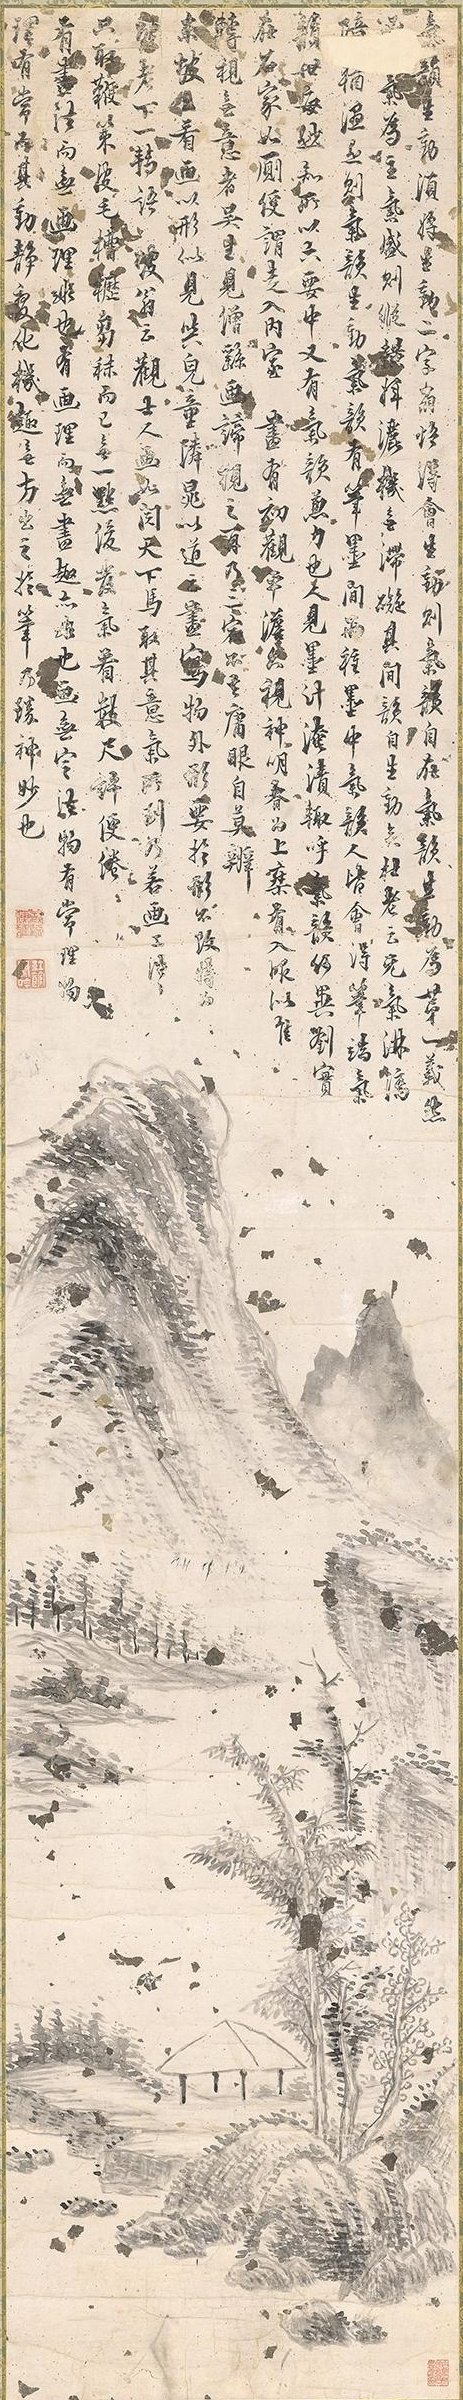 氣韻生動須將生動二字省悟得會生動則氣韻自在氣韻生動為第一義然
氣為主氣盛則縱橫揮灑機無滯礙其間韻自生動矣杜老云元氣淋漓
障猶濕是則氣韻生動 氣韻有筆墨間兩種墨中氣韻人皆會得筆端氣
韻世每鮮知所以六要中又有氣韻兼力也人見墨汁淹漬輒呼氣韻何異劉實
在石家如廁便謂走入內室 畫有初觀平澹久視神明者為上乘有入眼似佳
轉視無意者吳生見僧繇画諦視之再乃三宿不去庸眼自莫辨
東坡云看画以形似見與兒童隣晁以道云畫寫物外形要於形不改特為
坡老下一轉語 坡翁云觀士人画如閱天下馬取其意氣所到乃若画工往々
只取鞭策皮毛槽櫪芻秣而已無一點俊發氣看數尺許便倦
有畫法而無画理非也有画理而無畫趣亦非也画無定法物有常理物
理有常而其動靜變化機趣無方出之於筆乃臻神妙也